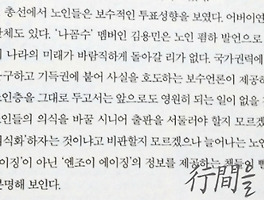 총선에서 노인들은 보수적인 투표성향을 보였다. 어버이연
단체도 있다. '나꼼수' 멤버인 김용민은 노인 폄하 발언으로
나라의 미래가 바람직하게 돌아갈 리가 없다. 국가권력에
구하고 기득권에 붙어 사실을 호도하는 보수언론이 제공하
노인층을 그대로 두고서는 앞으로도 영원히 되는 일이 없을
노인들의 의식을 바꿀 시니어 출판을 서둘러야 할지 모르겠
식화'하자는 것이냐고 비판할지 모르겠으나 늘어나는 노인
이징'이 아닌 '엔조이 에이징'의 정보를 제공하는 책들이
분명해 보인다.
行間을